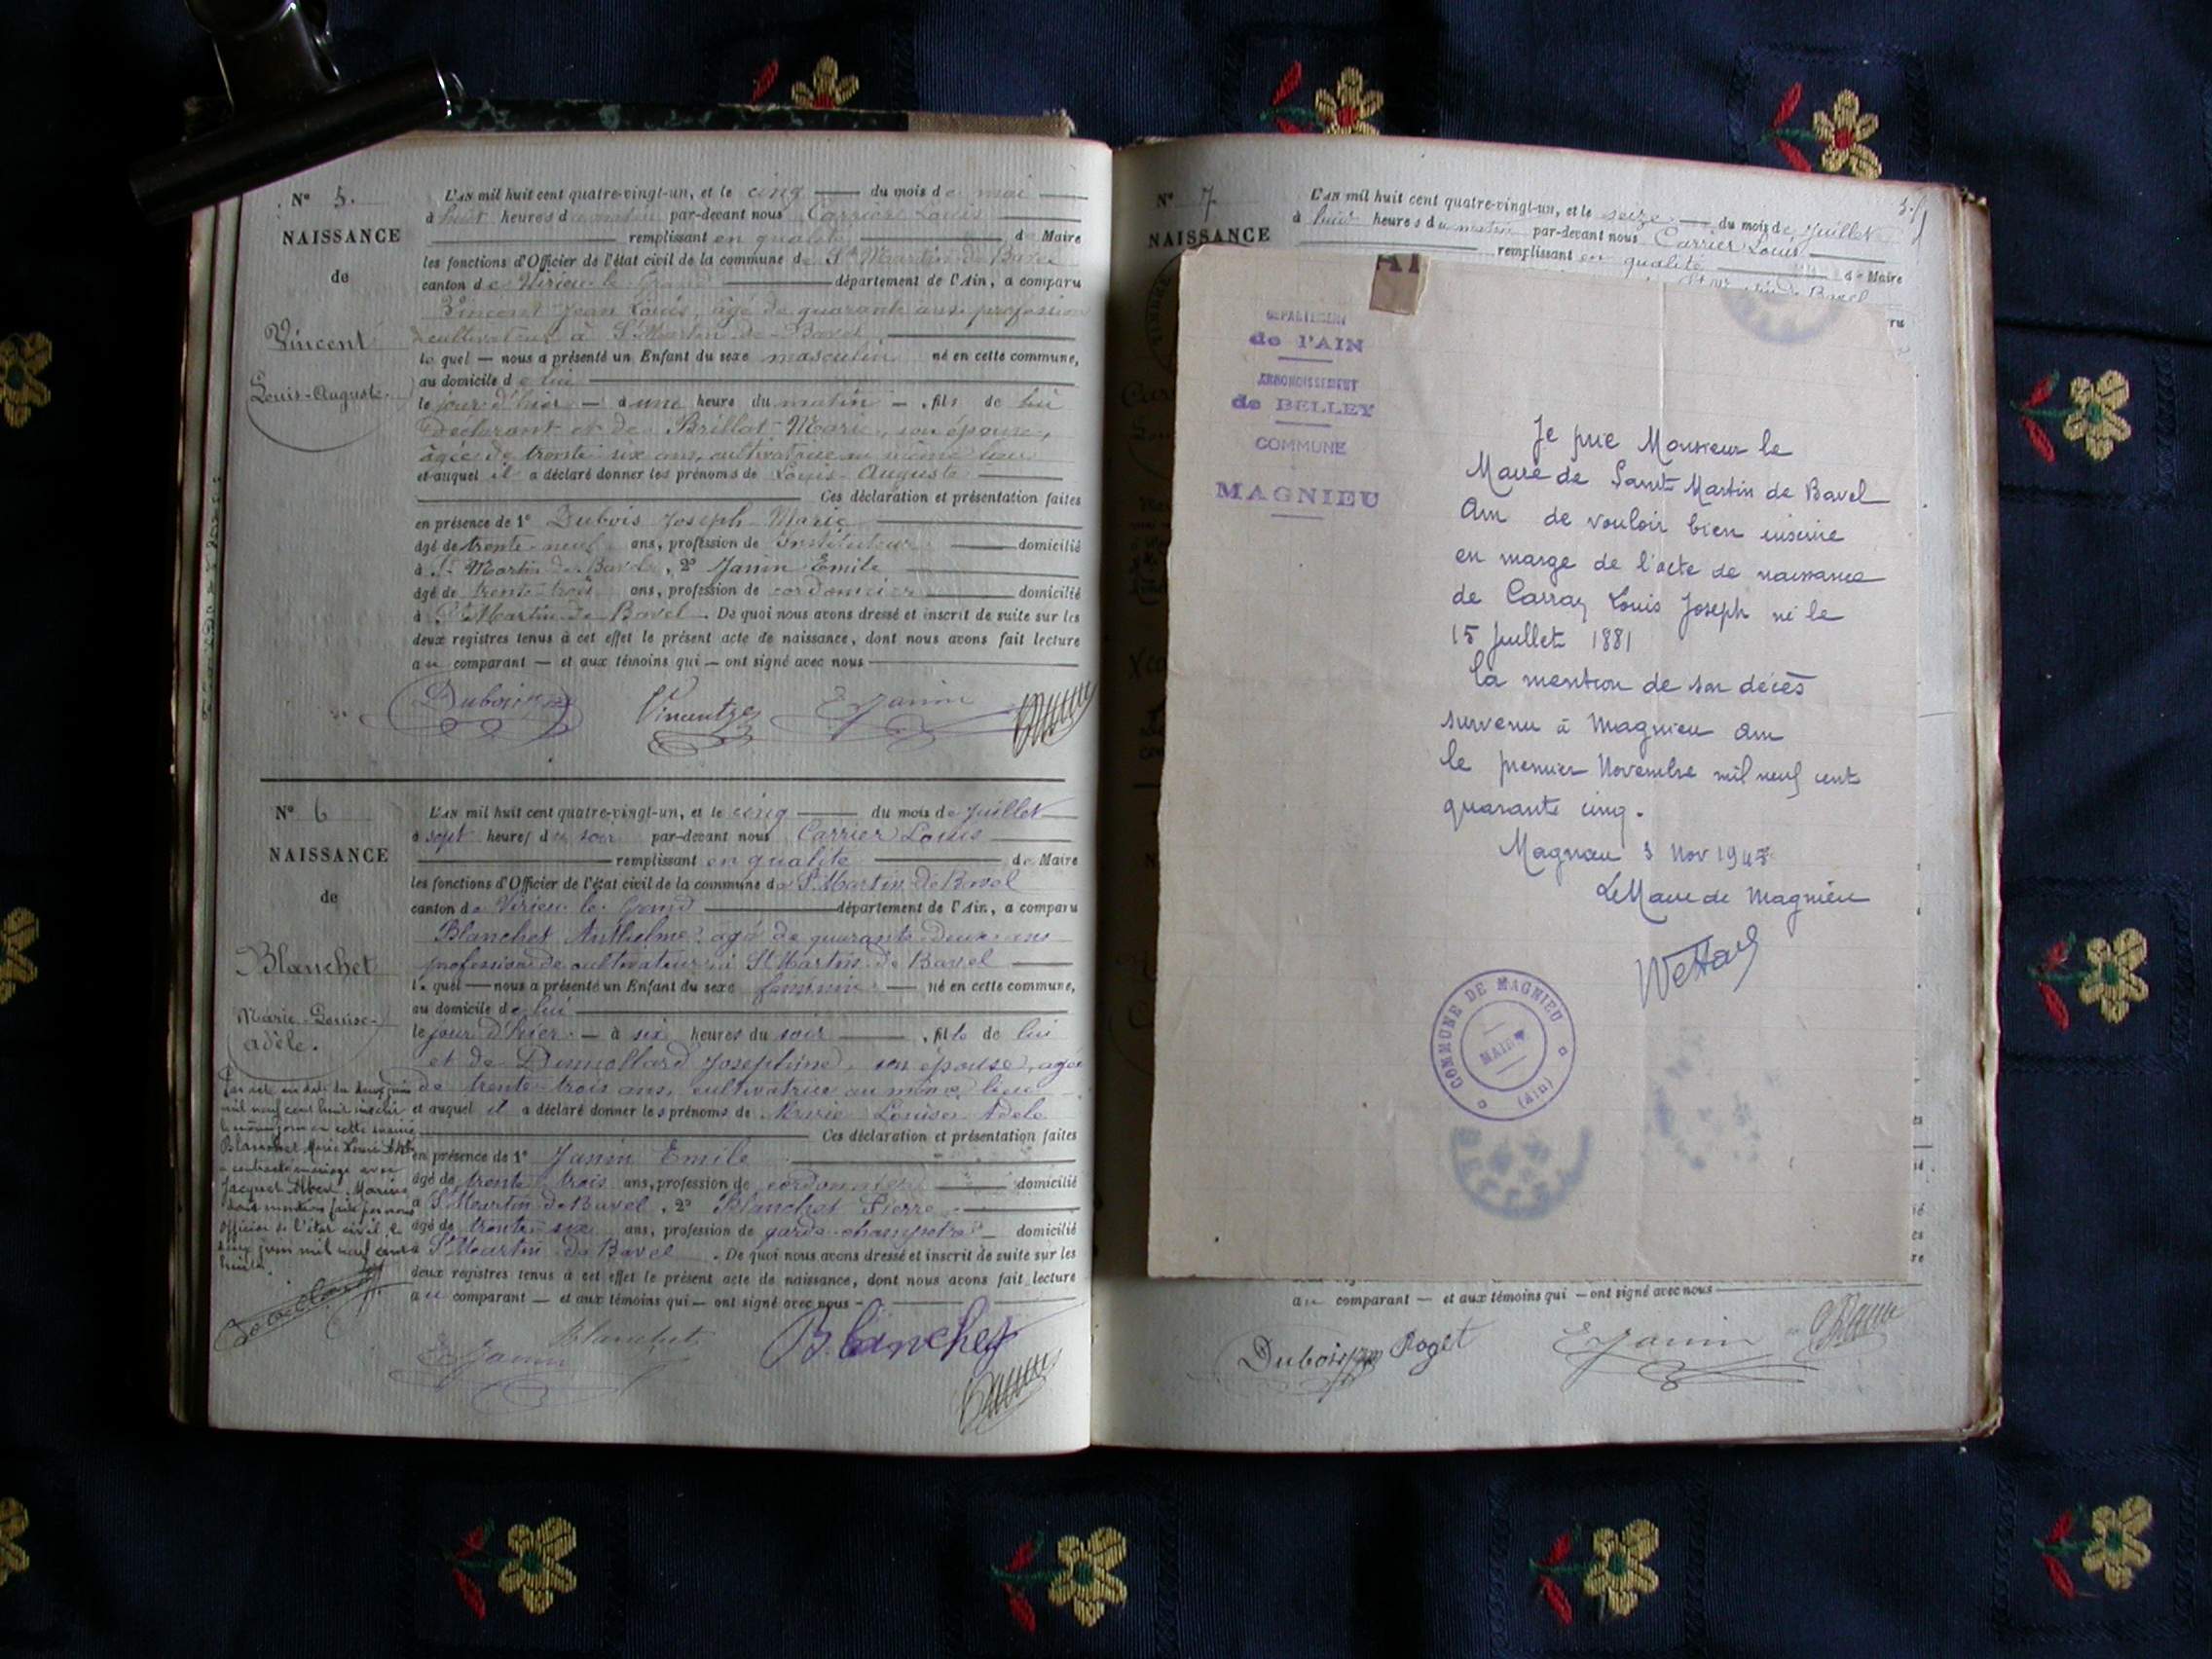 N° 5.
NAISSANCE
de
Vincent
Louis-Auguste.
L'AN mil huit cent quatre-vingt-un, et le cinq du mois de mai
à huit heures du matin par-devant nous Carrier Louis
remplissant en qualité de Maire
les fonctions d'Officier de l'état civil de la commune de St Martin de Bavel
canton de Virieu-le-Grand département de l'Ain, a comparu
Vincent Jean Louis, âgé de quarante ans, profession
de cultivateur à St Martin-de-Bavel
le quel — nous a présenté un Enfant du sexe masculin né en cette commune,
au domicile de lui
le jour d'hier — à une heure du matin — , fils de lui
déclarant et de Brillat Marie, son épouse,
âgée de trente-six ans, cultivatrice au même lieu
et auquel il a déclaré donner les prénoms de Louis-Auguste
Ces déclaration et présentation faites
en présence de 1° Dubois Joseph-Marie
âgé de trente-neuf ans, profession de Instituteur domicilié
à St Martin-de-Bavel, 2° Janin Emile
âgé de trente-trois ans, profession de cordonnier domicilié
à St Martin-de-Bavel. De quoi nous avons dressé et inscrit de suite sur les
deux registres tenus à cet effet le présent acte de naissance, dont nous avons fait lecture
au comparant — et aux témoins qui — ont signé avec nous
Dubois Vincent E Janin
N° 6
NAISSANCE
de
Blanchet
Marie-Louise-
Adèle.
L'AN mil huit cent quatre-vingt-un, et le cinq du mois de Juillet
à sept heures du soir par-devant nous Carrier Louis
remplissant en qualité de Maire
les fonctions d'Officier de l'état civil de la commune de St Martin De Bavel
canton de Virieu-le-Grand département de l'Ain, a comparu
Blanchet Anthelme, âgé de quarante-deux ans
profession de cultivateur, à St Martin de Bavel
le quel — nous a présenté un Enfant du sexe féminin — né en cette commune,
au domicile de lui
le jour d'hier — à six heures du soir , fille de lui
et de Dumollard Josephine, son épouse, agée
de trente-trois ans, cultivatrice au même lieu
et auquel il a déclaré donner les prénoms de Marie Louise Adèle
Ces déclaration et présentation faites
en présence de 1° Janin Emile
âgé de trente-trois ans, profession de cordonnier domicilié
à St Martin de Bavel, 2° Blanchet Pierre
âgé de trente-six ans, profession de garde-champêtre domicilié
à St Martin-de Bavel. De quoi nous avons dressé et inscrit de suite sur les
deux registres tenus à cet effet le présent acte de naissance, dont nous avons fait lecture
au comparant — et aux témoins qui — ont signé avec nous
Par acte en date du deux juin
mil neuf cent huit inscrit
le même jour en cette mairie
Blanchet Marie Louise Adèle
a contracté mariage avec
Jacquet Albert Marius
dont mention faite par nous
Officier de l'état civil le
deux juin mil neuf cent
huit.
E Janin Blanchet Blanchet
N° 7
NAISSANCE
L'AN mil huit cent quatre-vingt-un, et le seize du mois de Juillet
à huit heures du matin par-devant nous Carrier Louis
remplissant en qualité de Maire
DÉPARTEMENT
de l'AIN
ARRONDISSEMENT
de BELLEY
COMMUNE
MAGNIEU
Je prie Monsieur le
Maire de Saint Martin de Bavel
Ain de vouloir bien inscrire
en marge de l'acte de naissance
de Carraz Louis Joseph né le
15 Juillet 1881
la mention de son décès
survenu à Magnieu Ain
le premier Novembre mil neuf cent
quarante cinq.
Magnieu 3 Nov 1945
Le Maire de Magnieu
COMMUNE DE MAGNIEU
MAIRIE
(Ain)
au comparant — et aux témoins qui — ont signé avec nous
Dubois Roget E Janin